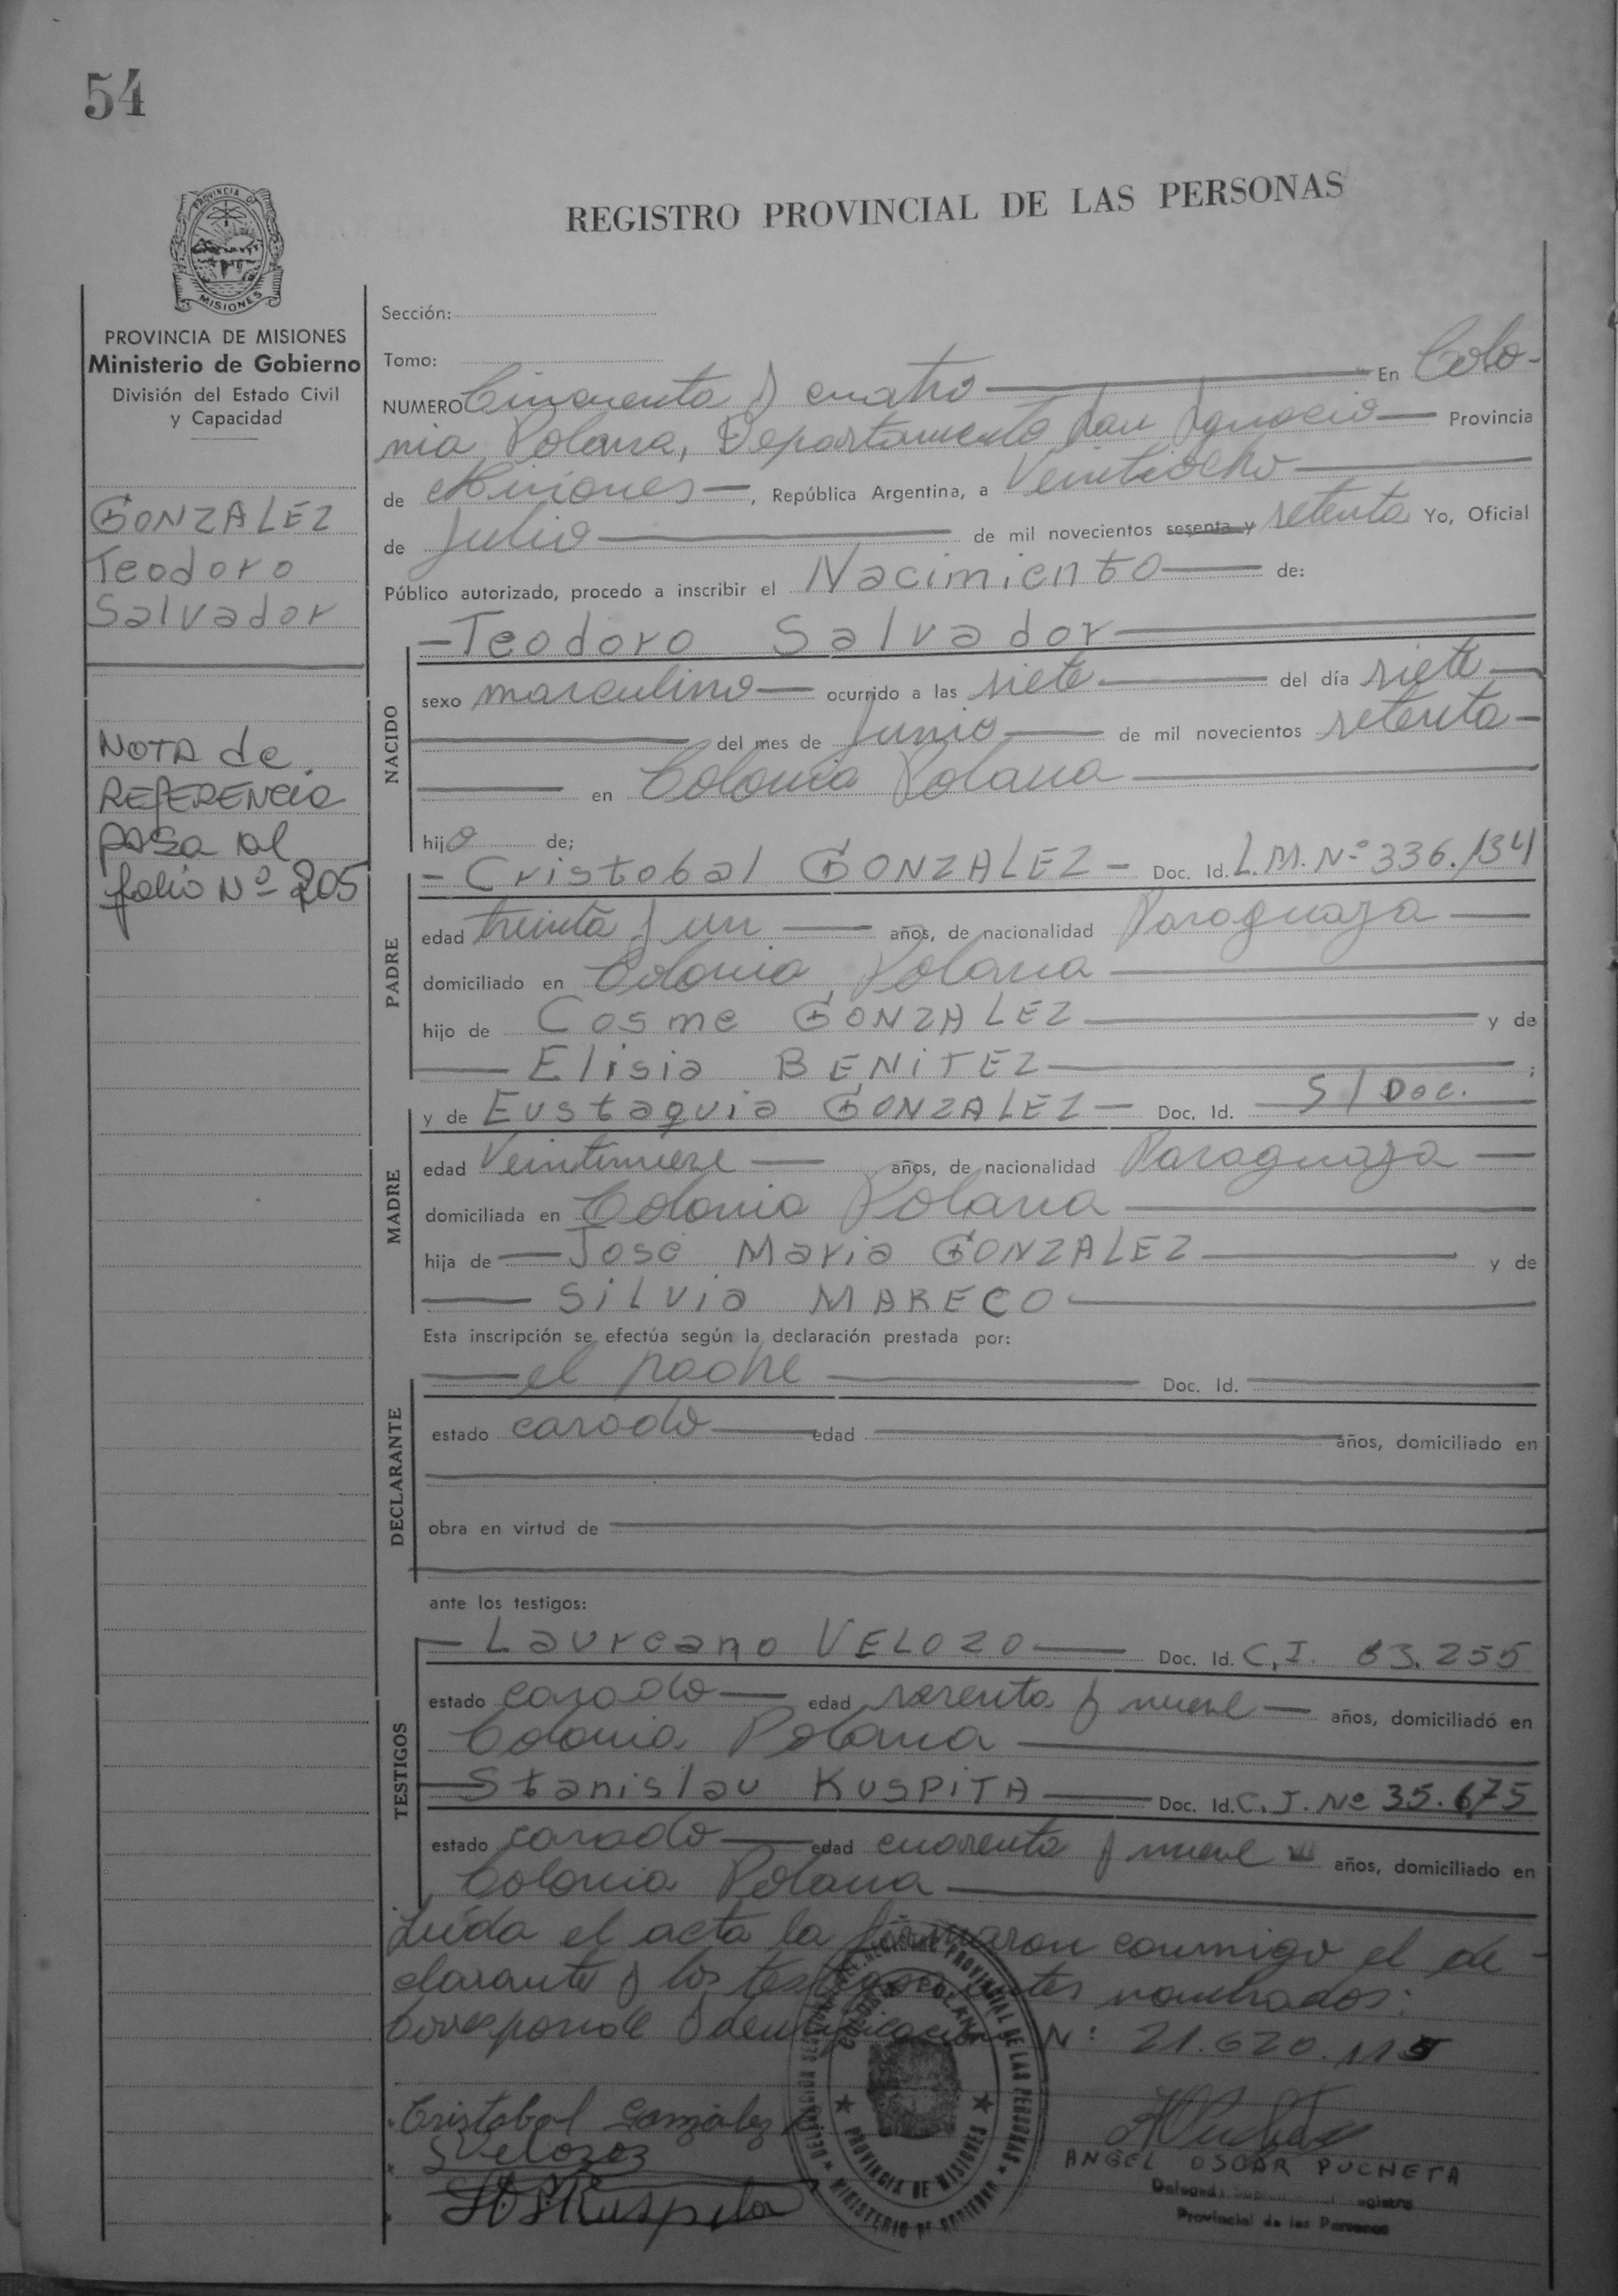 54
PROVINCIA DE
MISIONES
REGISTRO PROVINCIAL DE LAS PERSONAS
PROVINCIA DE MISIONES
Ministerio de Gobierno
División del Estado Civil
y Capacidad
GONZALEZ
Teodoro
Salvador
NOTA de
REFERENCIA
pasa al
folio Nº 205
Sección:
Tomo:
NUMERO Cincuenta y cuatro En Colo-
nia Polana, Departamento San Ignacio Provincia
de Misiones, República Argentina, a Veintiocho
de Julio de mil novecientos sesenta y setenta Yo, Oficial
Público autorizado, procedo a inscribir el Nacimiento de:
NACIDO
Teodoro Salvador
sexo masculino ocurrido a las siete del día siete
del mes de Junio de mil novecientos setenta
en Colonia Polana
hijo de;
PADRE
Cristobal GONZALEZ Doc. Id. L.M. Nº 336.134
edad treinta y un años, de nacionalidad Paraguaya
domiciliado en Colonia Polana
hijo de Cosme GONZALEZ y de
Elisia BENITEZ ;
MADRE
y de Eustaquia GONZALEZ Doc. Id. S/Doc.
edad Veintinueve años, de nacionalidad Paraguaya
domiciliada en Colonia Polana
hija de José Maria GONZALEZ y de
Silvia MARECO
Esta inscripción se efectúa según la declaración prestada por:
DECLARANTE
el padre Doc. Id.
estado casado edad años, domiciliado en
obra en virtud de
ante los testigos:
TESTIGOS
Laureano VELOZO Doc. Id. C.I. 83.255
estado casado edad sesenta y nueve años, domiciliado en
Colonia Polana
Stanislau KUSPITA Doc. Id. C.I. Nº 35.675
estado casado edad cuarenta y nueve años, domiciliado en
Colonia Polana
Leída el acta la firmaron conmigo el de-
clarante y los testigos antes nombrados:
Corresponde Identificación Nº: 21.620.115
COLONIA POLANA
PROVINCIA DE MISIONES
REGISTRO PROVINCIAL DE LAS PERSONAS
MINISTERIO DE GOBIERNO
Cristobal Gonzalez
ANGEL OSCAR PUCHETA
Provincial de las Personas